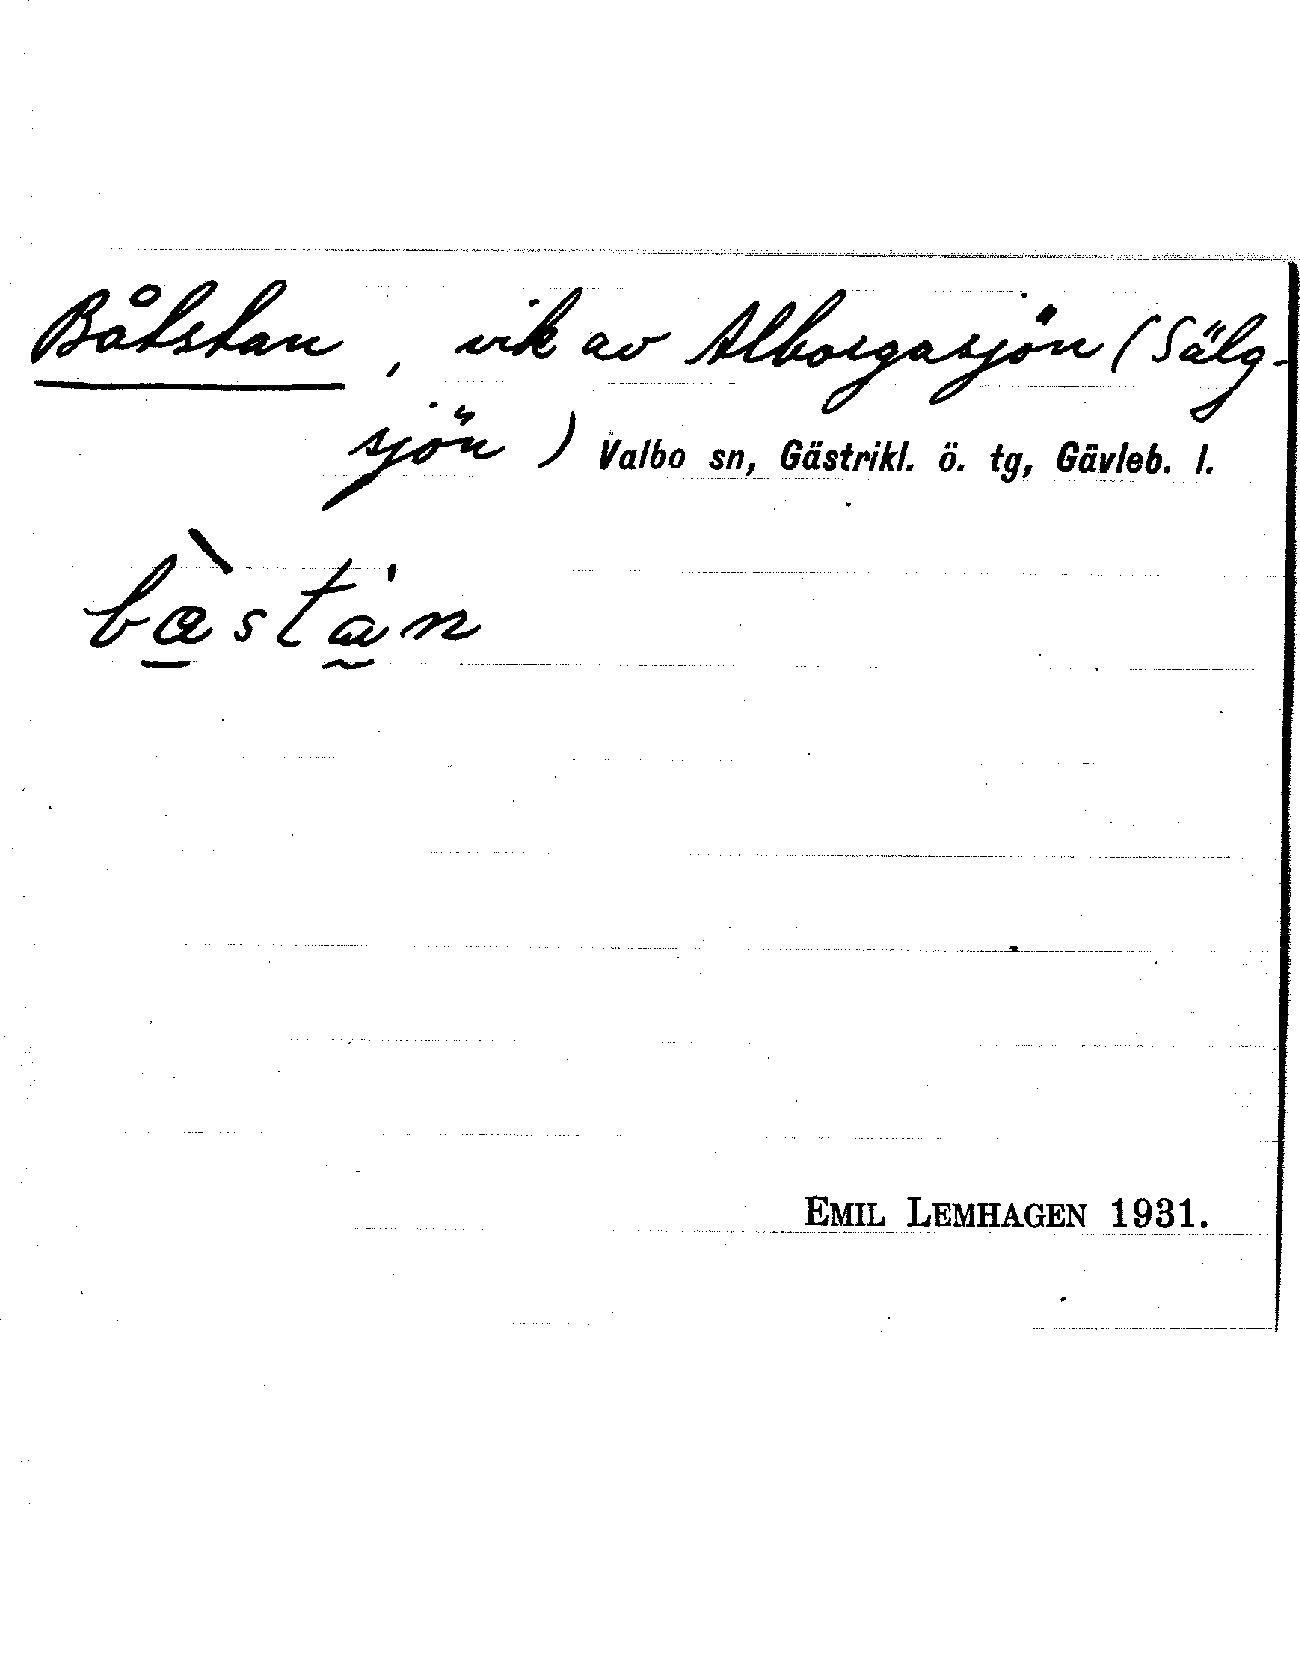 Båtstan, vik av Alborgasjön (Sälg-
sjön) Valbo sn, Gästrikl. ö. tg, Gävleb. l.
bàstan
EMIL LEMHAGEN 1931.